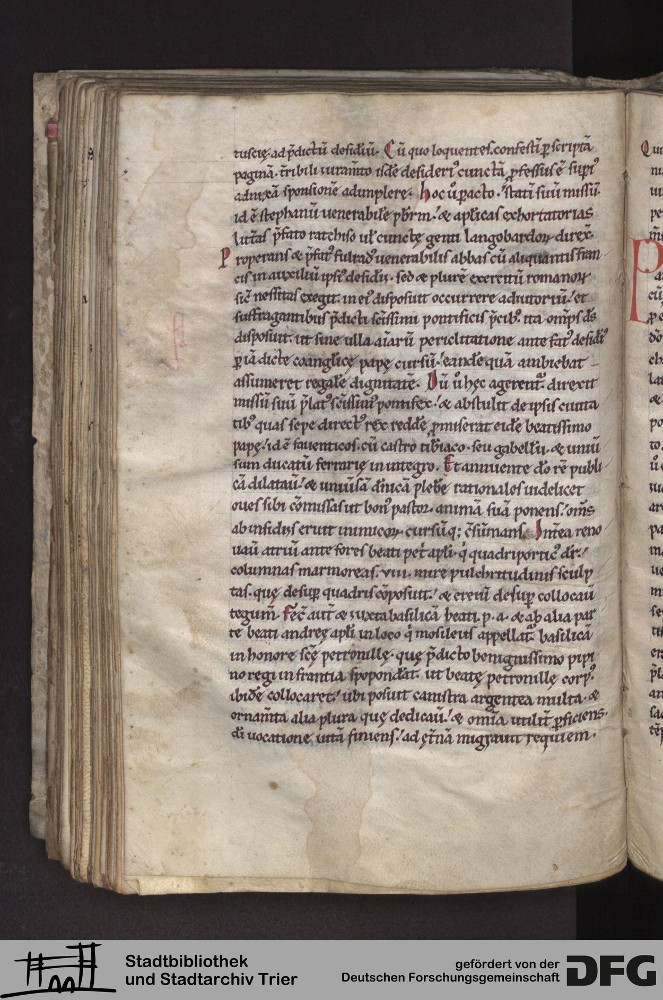 tuscię. ad p̄dictū desidiū. Cū quo loquentes. confestī p̄ scriptā
paginā. tribili iuram̄to isdē desideriꝰ cunctā p̄fessus ē supiꝰ
adnixā sponsionē adimplere. hoc ū pacto. statī suū missū.
id ē stephanū uenerabilē pbrm̄. & apl̄icas exhortatorias
litt̄as p̄fato ratchiso ul̄ cunctę genti langobardoꝝ direx̄.
Properans & p̄fatꝰ fulradꝰ uenerabilis abbas cū aliquantis fran
cis in auxiliū ipsiꝰ desidii. sed & plurēs exercitū romanoꝝ
sic̄ necssitas exegit. in eiꝰ disposuit occurrere adiutoriū. et
suffragantibus p̄dicti sc̄issimi pontificis p̄cibꝰ. ita omīps dš
disposuit. ut sine ulla aīarū periclitatione ante fatꝰ desidiꝰ
ꝑ iā dictę coangl̄icę papę cursū. eandē quā ambiebat
assumeret regalē dignitatē. Dū ū hęc agerent̄. direxit
missū suū p̄latꝰ sc̄issimꝰ pontifex. & abstulit de ipsis ciuita
tibꝰ quas sepe directꝰ rex reddē p̄miserat eidē beatissimo
papę. id ē fauenticos. cū castro tib̄iaco. seu gabellū. & uniū
sum ducatū ferrarię in integro. Et annuente dn̄o rē publi
cā dilataū. & uniūsā dn̄icā plebē rationales uidelicet
oues sibi cōmissas ut bonꝰ pastor. animā suā ponens. om̄s
ab insidiis eruit inimicoꝝ. cursūq; c̄sūmans. Int̄ea reno
uaū atriū ante fores beati pet̄ apl̄i. q̇ quadriporticꝰ dr̄.
columnas marmoreas. viii. mirę pulchritudinis sculp
tas. quę desup̄ quadris cōposuit. & ereūi desup̄ collocaū
tegum̄. Fec̄ aūt & iuxta basilicā beati. p. a. & ab alia par
te beati andreę apl̄i in loco q̇ mosileus appellat̄. basilicā
in honore scę petronillę. quę p̄dicto benignissimo pipi
no regi in frantia spopondāt. ut beatę petronillę corpꝰ.
ibidē collocaret. ubi posuit canistra argentea multa. &
ornam̄ta alia plura quę dedicaū. & om̄ia utilit̄ ꝑficiens.
dī uocatione uitā finiens. ad ęt̄nā migrauit requiem.
Stadtbibliothek
und Stadtarchiv Trier
gefördert von der
Deutschen Forschungsgemeinschaft
DFG